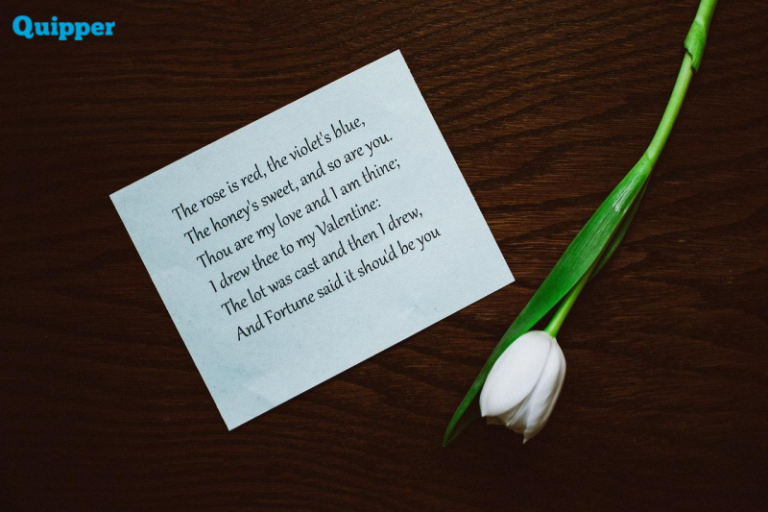 Quipper
The rose is red, the violet's blue,
The honey's sweet, and so are you.
Thou are my love and I am thine;
I drew thee to my Valentine:
The lot was cast and then I drew,
And Fortune said it shou'd be you